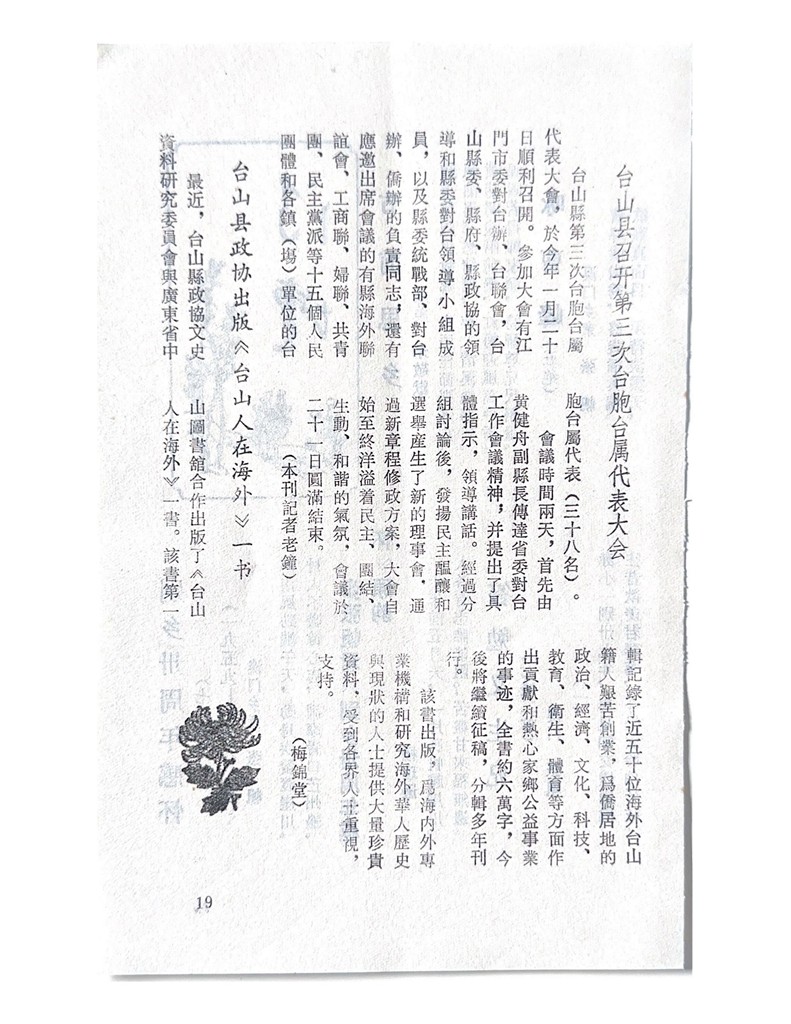 台山县召开第三次台胞台属代表大会
台山縣第三次台胞台屬
代表大會，於今年一月二十
日順利召開。參加大會有江
門市委對台辦、台聯會，台
山縣委、縣府、縣政協的領
導和縣委對台領導小組成
員，以及縣委統戰部、對台
辦、僑辦的負責同志，還有
應邀出席會議的有縣海外聯
誼會、工商聯、婦聯、共青
團、民主黨派等十五個人民
團體和各鎮（場）單位的台
胞台屬代表（三十八名）。
會議時間兩天，首先由
黄健舟副縣長傳達省委對台
工作會議精神，并提出了具
體指示，領導講話。經過分
組討論後，發揚民主醖釀和
選舉産生了新的理事會，通
過新章程修政方案，大會自
始至終洋溢着民主、團結、
生動、和諧的氣氛，會議於
二十一日圓滿結束。
（本刊記者老鐘）
台山县政协出版《台山人在海外》一书
最近，台山縣政協文史
資料研究委員會與廣東省中
山圖書舘合作出版了《台山
人在海外》一書。該書第一
輯記錄了近五十位海外台山
籍人艱苦創業，爲僑居地的
政治、經濟、文化、科技、
教育、衛生、體育等方面作
出貢獻和熱心家鄉公益事業
的事迹，全書約六萬字，今
後將繼續征稿，分輯多年刊
行。
該書出版，爲海内外專
業機構和研究海外華人歷史
與現狀的人士提供大量珍貴
資料，受到各界人士重視，
支持。
（梅錦堂）
19